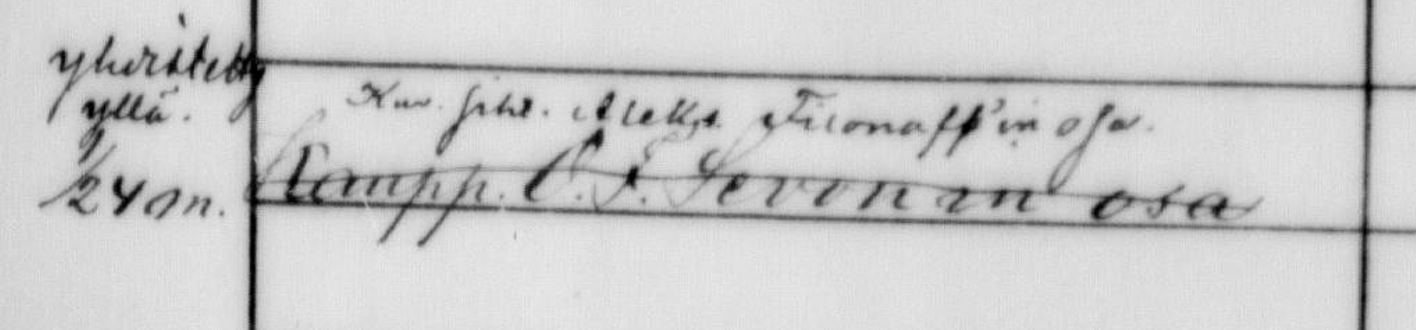 yhdistetty
yllä.
1/24 m.
Kuv. joht. Aleks. Tironoff'in osa.
Kaupp. C. F. Levonin osa